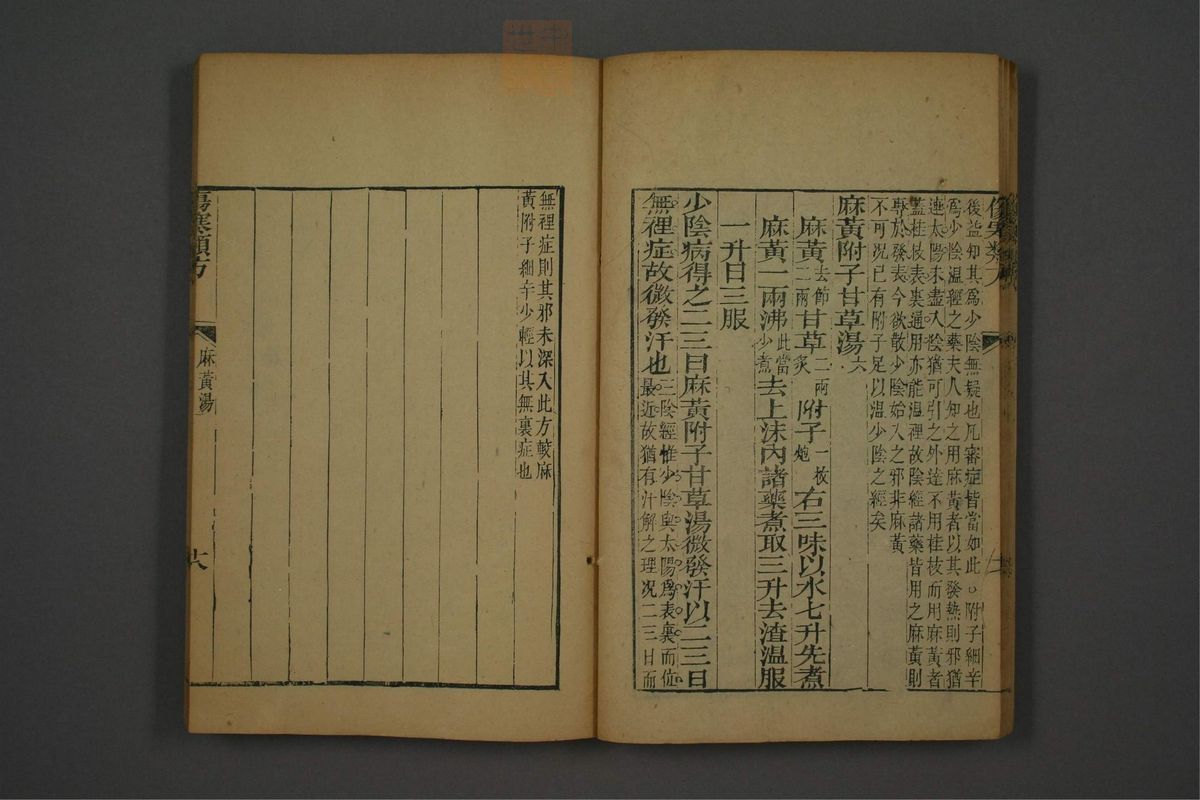 後益知其爲少陰無疑也凡審症皆當如此○附子細辛
爲少陰温經之藥夫人知之用麻黃者以其發熱則邪猶
連太陽未盡入陰猶可引之外達不用桂枝而用麻黃者
蓋桂枝表裏通用亦能温裡故陰經諸藥皆用之麻黃則
專於發表今欲散少陰始入之邪非麻黃
不可况已有附子足以温少陰之經矣
麻黃附子甘草湯六
麻黃二兩去節甘草二兩炙附子一枚炮右三味以水七升先煮
麻黃一兩沸此當少煮去上沫內諸藥煮取三升去渣温服
一升日三服
少陰病得之二三日麻黃附子甘草湯微發汗以二三日
無裡症故微發汗也三陰經惟少陰與太陽爲表裏而位
最近故猶有汁解之理况二三日而
無裡症則其邪未深入此方較麻
黃附子細辛少輕以其無裏症也
傷寒類方
麻黃湯